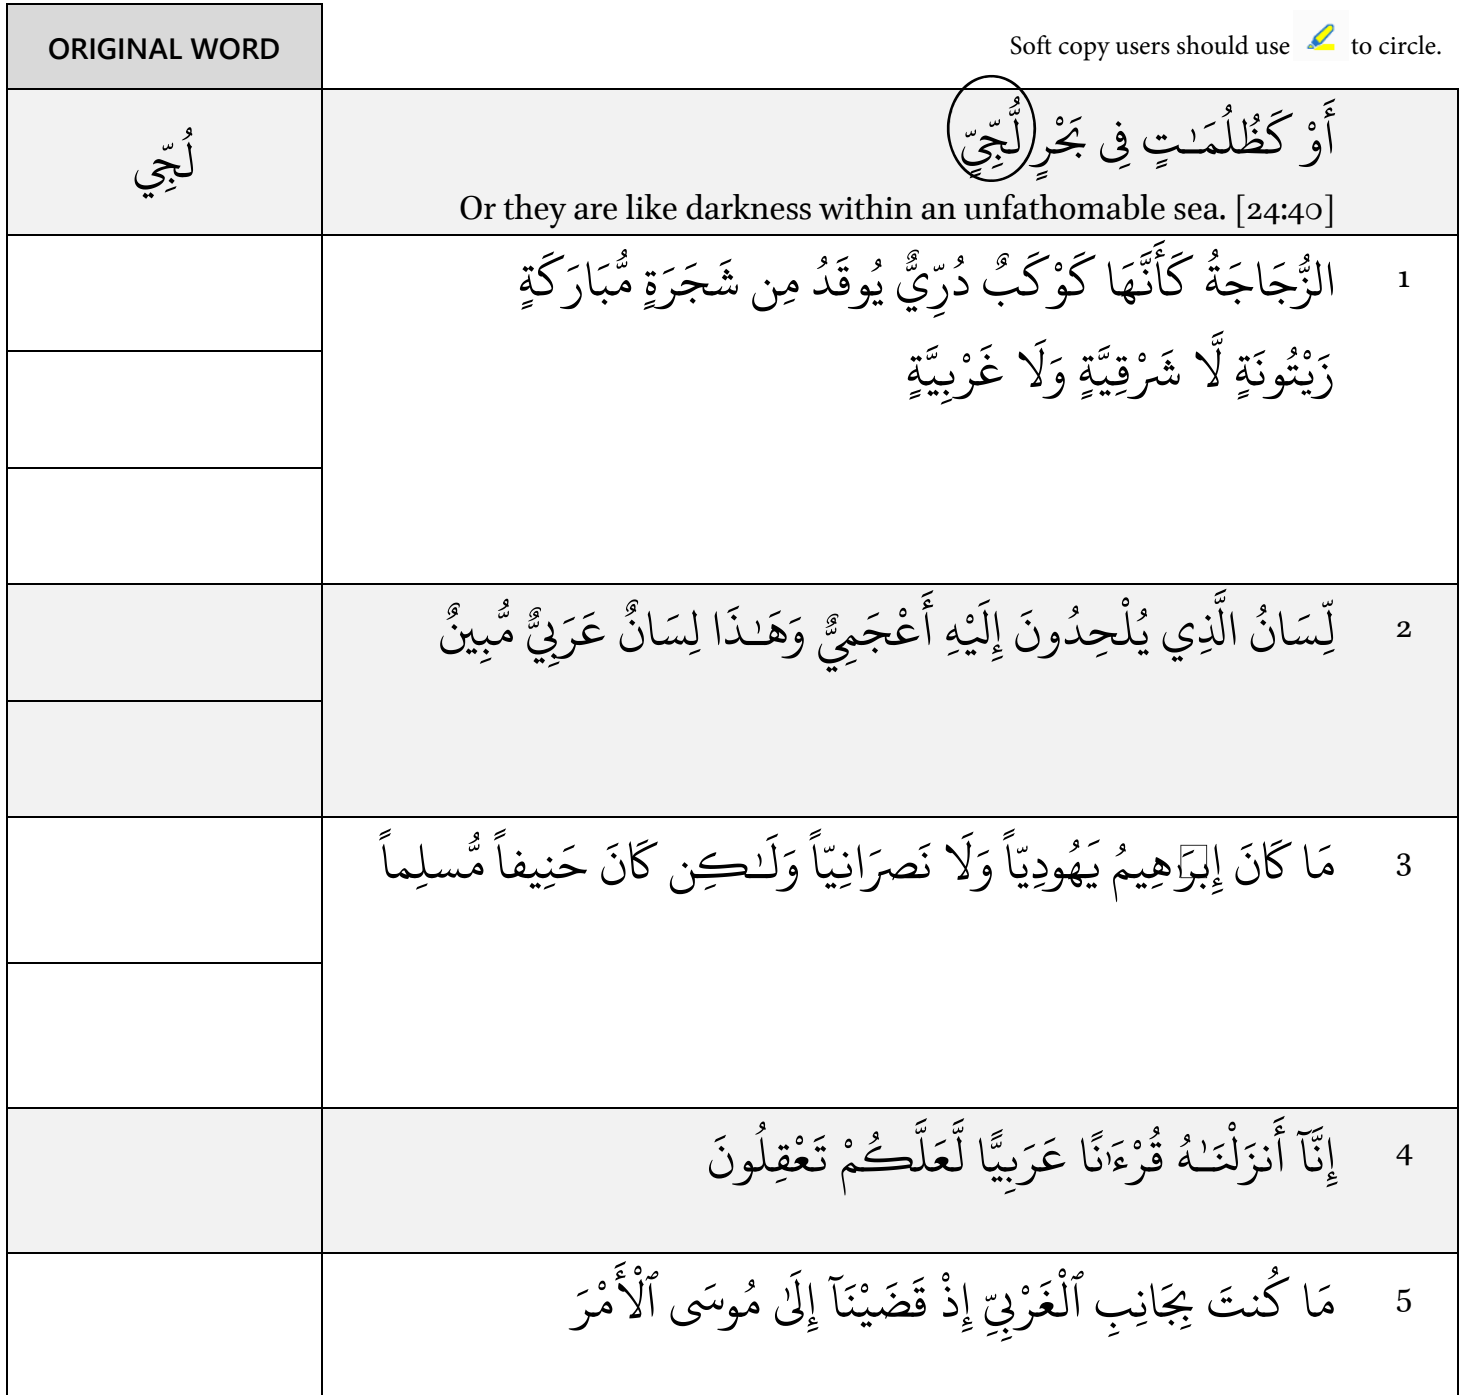 ORIGINAL WORD
Soft copy users should use to circle.
لُجِّي
أَوْ كَظُلُمَـٰتٍ فِى بَحْرٍ لُّجِّىٍّ
Or they are like darkness within an unfathomable sea. [24:40]
1 الزُّجَاجَةُ كَأَنَّهَا كَوْكَبٌ دُرِّيٌّ يُوقَدُ مِن شَجَرَةٍ مُّبَارَكَةٍ
زَيْتُونَةٍ لَّا شَرْقِيَّةٍ وَلَا غَرْبِيَّةٍ
2 لِّسَانُ الَّذِي يُلْحِدُونَ إِلَيْهِ أَعْجَمِيٌّ وَهَـٰذَا لِسَانٌ عَرَبِيٌّ مُّبِينٌ
3 مَا كَانَ إِبرَٰهِيمُ يَهُودِيّاً وَلَا نَصرَانِيّاً وَلَـٰكِن كَانَ حَنِيفاً مُّسلِماً
4 إِنَّآ أَنزَلْنَـٰهُ قُرْءَٰنًا عَرَبِيًّا لَّعَلَّكُمْ تَعْقِلُونَ
5 مَا كُنتَ بِجَانِبِ ٱلْغَرْبِىِّ إِذْ قَضَيْنَآ إِلَىٰ مُوسَى ٱلْأَمْرَ